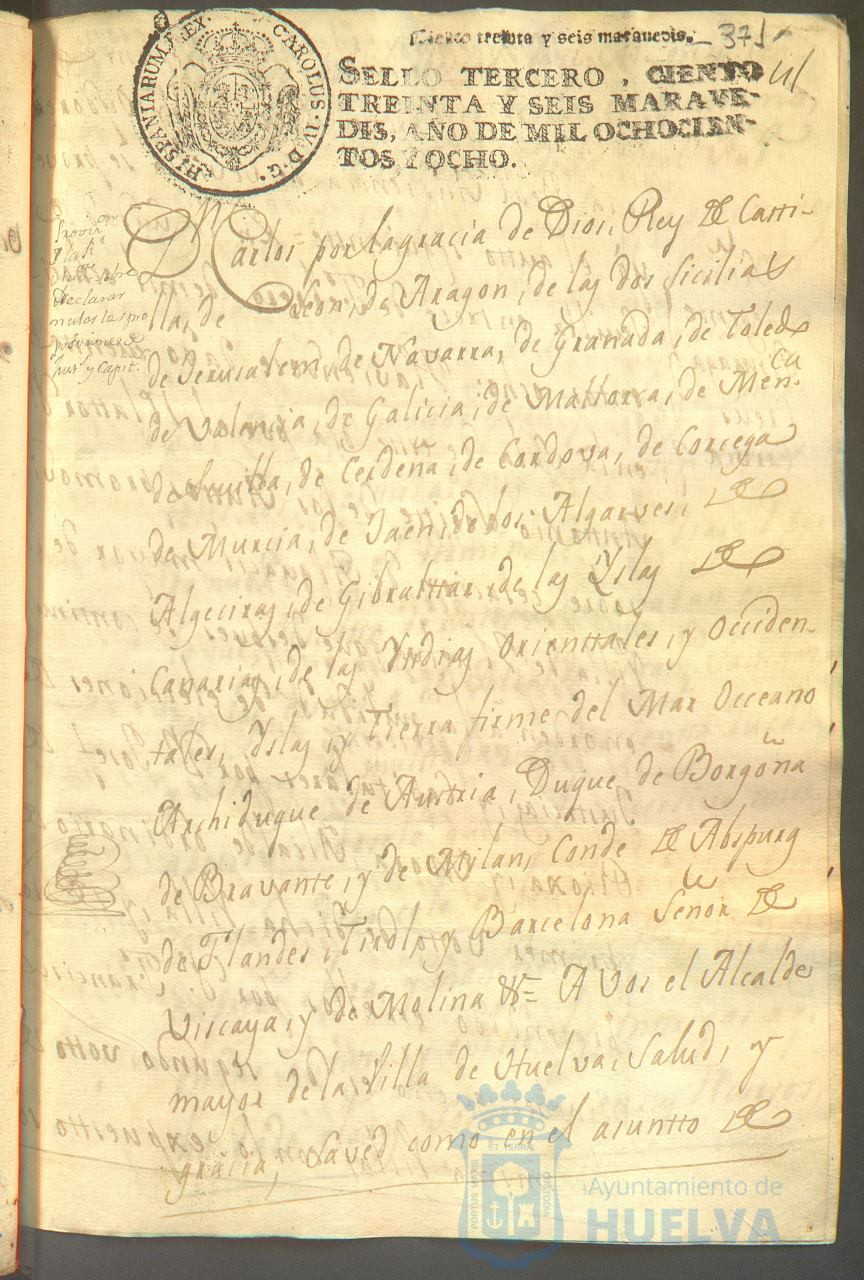 Ciento treinta y seis maravedis.
371
SELLO TERCERO, CIENTO
TREINTA Y SEIS MARAVE-
DIS, AÑO DE MIL OCHOCIEN-
TOS Y OCHO.
CAROLUS·IV·D·G·HISPANIARUM·REX·
Declarar
nulos las pro
posiciones de
Jus.^s y Capit.^s
D^n Carlos por la gracia de Dios, Rey de Casti-
lla, de Leon, de Aragon, de las dos Sicilias
de Jerusalem, de Navarra, de Granada, de Toledo
de Valencia, de Galicia, de Mallorca, de Menorca
de Sevilla, de Cerdeña, de Cordova, de Corcega
de Murcia, de Jaen, de los Algarves, de
Algeciras, de Gibralttar, de las Yslas de
Canarias, de las Yndias Orienttales, y Occiden-
tales, Yslas, y Tierra firme del Mar Occeano
Archiduque de Austria, Duque de Borgoña
de Bravante, y de Mylan, Conde de Abspurg
de Flandes, Tirol, y Barcelona Señor de
Viscaya, y de Molina &^a = A Vos el Alcalde
mayor de la Villa de Huelva, Salud, y
gracia, Saved como en el asuntto de
PORTUS MARIS
ET TERRAE
CUSTODIA
Ayuntamiento de
HUELVA